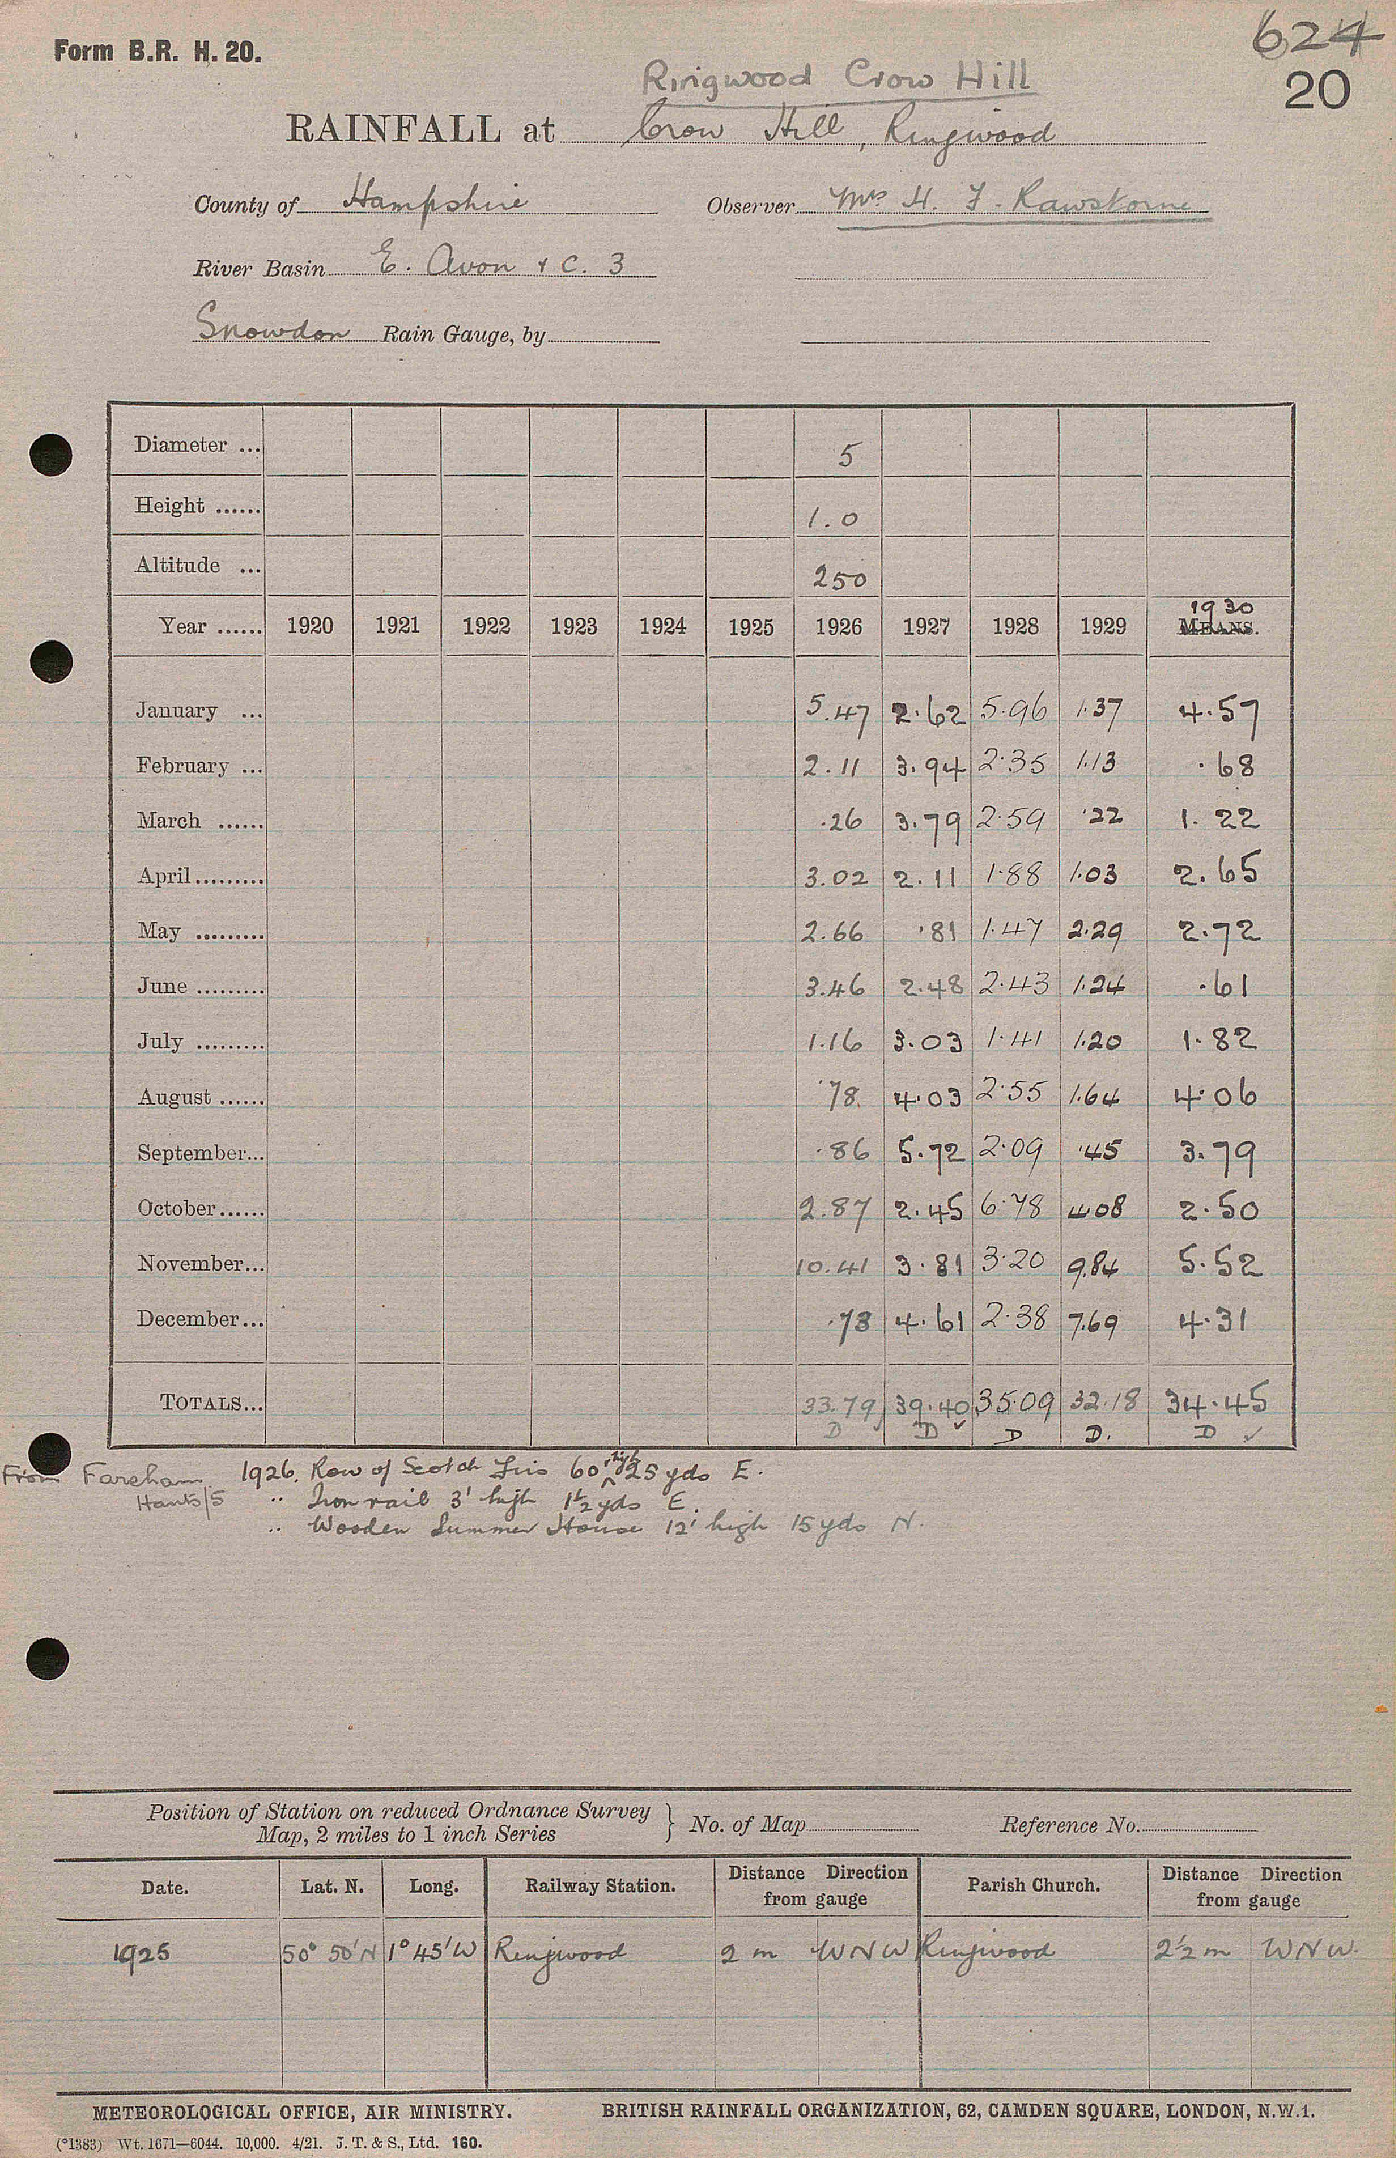 624
Form B.R. H. 20.
20
Ringwood Crow Hill
RAINFALL at Crow Hill, Ringwood
County of Hampshire Observer Mrs H. F. Rawstorne
River Basin E. Avon & C. 3
Snowdon Rain Gauge, by
Diameter ... 5
Height ...... 1.0
Altitude ... 250
1930
Year ...... 1920 1921 1922 1923 1924 1925 1926 1927 1928 1929 MEANS.
January ... 5.47 2.62 5.96 1.37 4.57
February ... 2.11 3.94 2.35 1.13 .68
March ...... .26 3.79 2.59 .22 1.22
April ......... 3.02 2.11 1.88 1.03 2.65
May ......... 2.66 .81 1.47 2.29 2.72
June ......... 3.46 2.48 2.43 1.24 .61
July ......... 1.16 3.03 1.41 1.20 1.82
August ...... .78 4.03 2.55 1.64 4.06
September... .86 5.72 2.09 .45 3.79
October ...... 2.87 2.45 6.78 4.08 2.50
November... 10.41 3.81 3.20 9.84 5.52
December... .73 4.61 2.38 7.69 4.31
TOTALS... 33.79 39.40 35.09 32.18 34.45
D D ✓ D D. D ✓
From Fareham 1926. Row of Scotch Firs 60' high 25 yds E.
Hants/5 " Iron rail 3' high 1½ yds E.
" Wooden Summer House 12' high 15 yds N.
Position of Station on reduced Ordnance Survey
Map, 2 miles to 1 inch Series } No. of Map Reference No.
Date. Lat. N. Long. Railway Station. Distance Direction from gauge Parish Church. Distance Direction from gauge
1925 50° 50' N 1° 45' W Ringwood 2 m WNW Ringwood 2½ m WNW.
METEOROLOGICAL OFFICE, AIR MINISTRY. BRITISH RAINFALL ORGANIZATION, 62, CAMDEN SQUARE, LONDON, N.W.1.
(*1383) Wt. 1671—6044. 10,000. 4/21. J. T. & S., Ltd. 160.